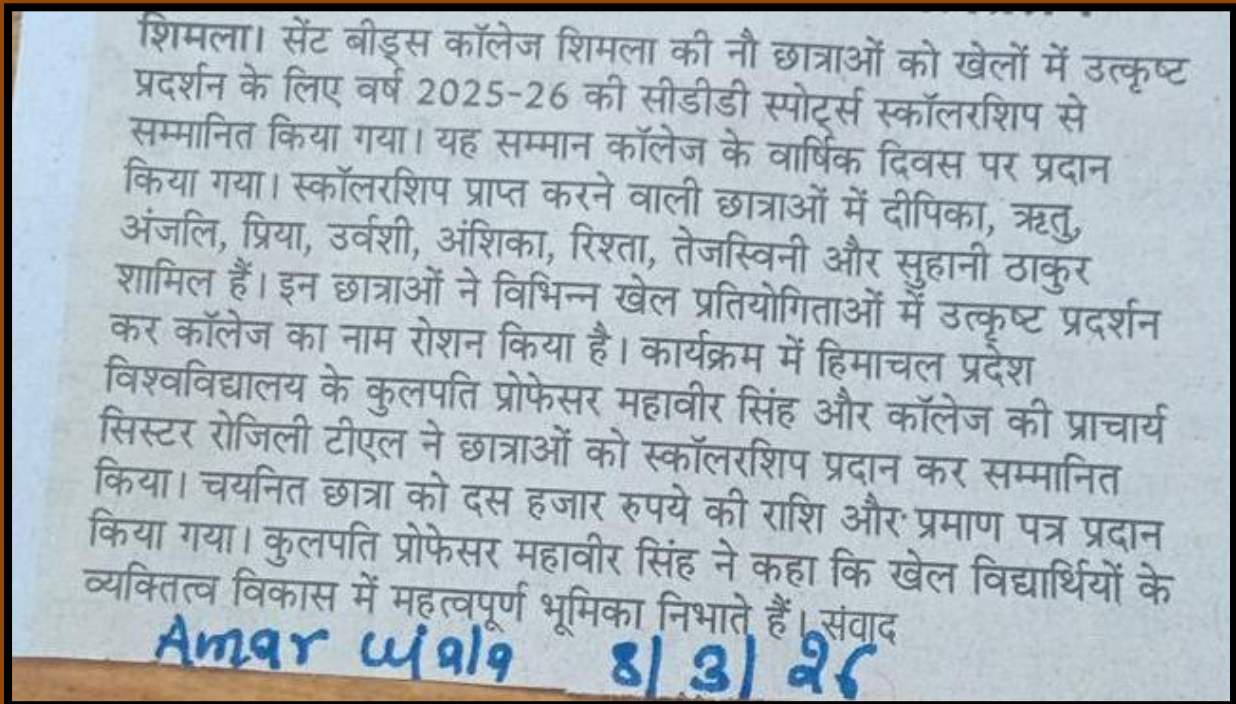 शिमला। सेंट बीड्स कॉलेज शिमला की नौ छात्राओं को खेलों में उत्कृष्ट
प्रदर्शन के लिए वर्ष 2025-26 की सीडीडी स्पोर्ट्स स्कॉलरशिप से
सम्मानित किया गया। यह सम्मान कॉलेज के वार्षिक दिवस पर प्रदान
किया गया। स्कॉलरशिप प्राप्त करने वाली छात्राओं में दीपिका, ऋतु,
अंजलि, प्रिया, उर्वशी, अंशिका, रिश्ता, तेजस्विनी और सुहानी ठाकुर
शामिल हैं। इन छात्राओं ने विभिन्न खेल प्रतियोगिताओं में उत्कृष्ट प्रदर्शन
कर कॉलेज का नाम रोशन किया है। कार्यक्रम में हिमाचल प्रदेश
विश्वविद्यालय के कुलपति प्रोफेसर महावीर सिंह और कॉलेज की प्राचार्य
सिस्टर रोजिली टीएल ने छात्राओं को स्कॉलरशिप प्रदान कर सम्मानित
किया। चयनित छात्रा को दस हजार रुपये की राशि और प्रमाण पत्र प्रदान
किया गया। कुलपति प्रोफेसर महावीर सिंह ने कहा कि खेल विद्यार्थियों के
व्यक्तित्व विकास में महत्वपूर्ण भूमिका निभाते हैं। संवाद
Amar 8/3/26